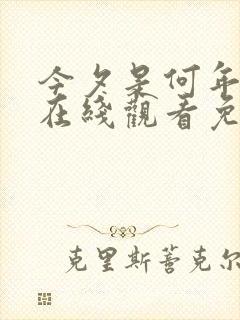 今夕是何年
在綫觀看免
克里斯蒂克尔